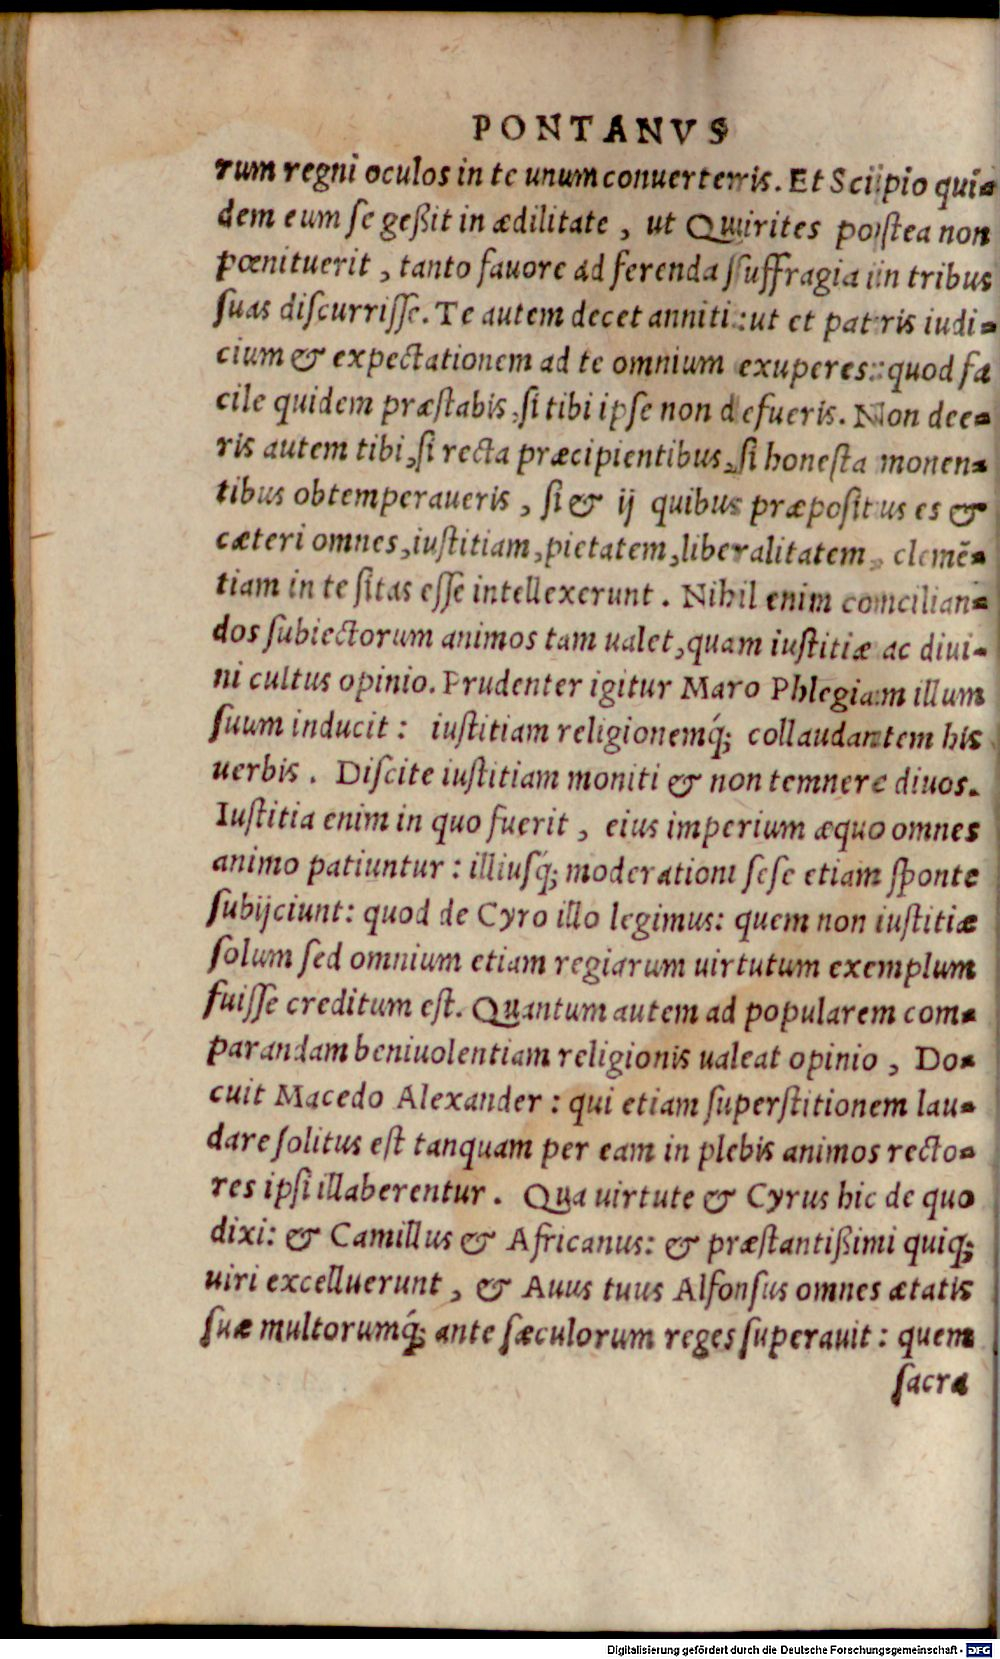 PONTANVS
rum regni oculos in te unum conuerterris. Et Sciipio qui-
dem eum se geßit in ædilitate, ut Quirites postea non
pœnituerit, tanto fauore ad ferenda suffragia in tribus
suas discurrisse. Te autem decet anniti: ut et patris iudi-
cium & expectationem ad te omnium exuperes: quod fa
cile quidem præstabis, si tibi ipse non defueris. Non dee-
ris autem tibi, si recta præcipientibus, si honesta monen-
tibus obtemperaueris, si & ij quibus præpositus es &
cæteri omnes, iustitiam, pietatem, liberalitatem, clemẽ-
tiam in te sitas esse intellexerunt. Nihil enim concilian-
dos subiectorum animos tam ualet, quam iustitiæ ac diui-
ni cultus opinio. Prudenter igitur Maro Phlegiam illum
suum inducit: iustitiam religionemq́; collaudantem his
uerbis. Discite iustitiam moniti & non temnere diuos.
Iustitia enim in quo fuerit, eius imperium æquo omnes
animo patiuntur: illiusq́; moderationi sese etiam sponte
subijciunt: quod de Cyro illo legimus: quem non iustitiæ
solum sed omnium etiam regiarum uirtutum exemplum
fuisse creditum est. Quantum autem ad popularem com-
parandam beniuolentiam religionis ualeat opinio, Do-
cuit Macedo Alexander: qui etiam superstitionem lau-
dare solitus est tanquam per eam in plebis animos recto-
res ipsi illaberentur. Qua uirtute & Cyrus hic de quo
dixi: & Camillus & Africanus: & præstantißimi quiq;
uiri excelluerunt, & Auus tuus Alfonsus omnes ætatis
suæ multorumq́; ante sæculorum reges superauit: quem
sacra
Digitalisierung gefördert durch die Deutsche Forschungsgemeinschaft - DFG